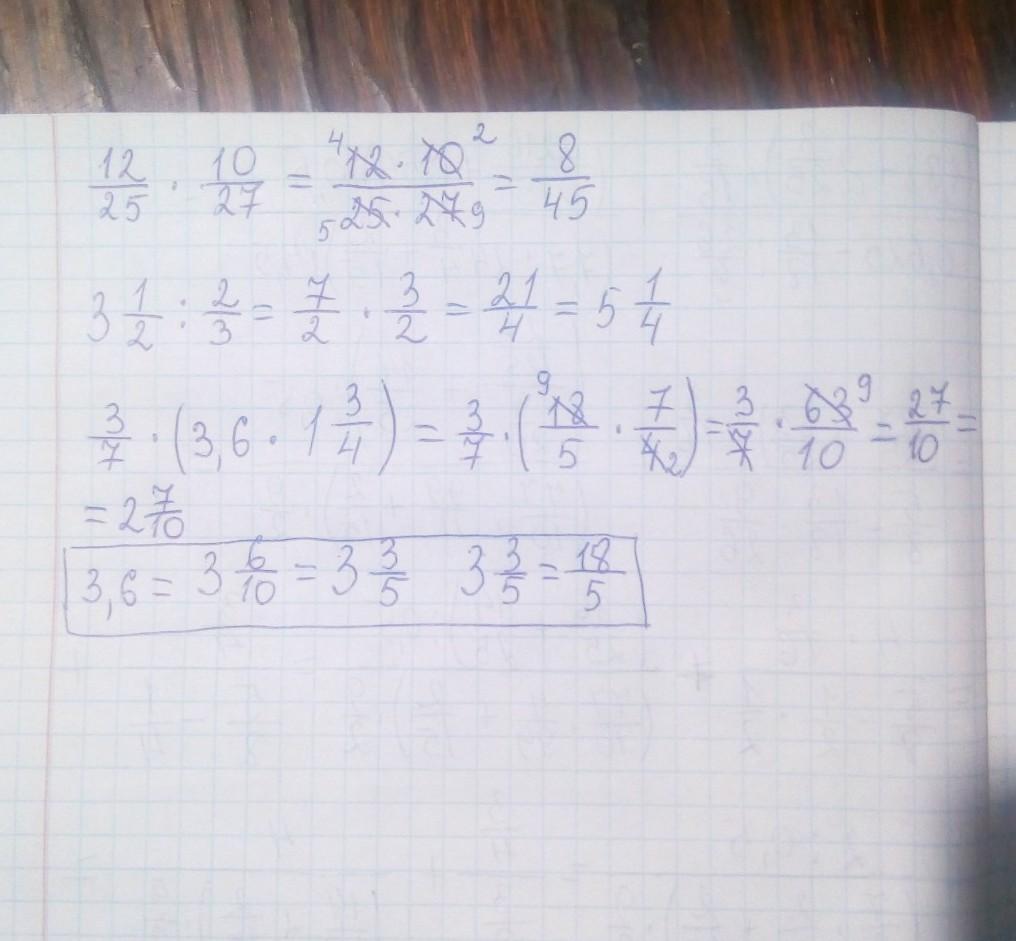 12/25 · 10/27 = ⁴12 · 10² / ₅25 · 27₉ = 8/45
3 1/2 : 2/3 = 7/2 · 3/2 = 21/4 = 5 1/4
3/7 · (3,6 · 1 3/4) = 3/7 · (⁹18/5 · 7/4₂) = 3/7 · 63⁹/10 = 27/10 =
= 2 7/10
3,6 = 3 6/10 = 3 3/5 3 3/5 = 18/5